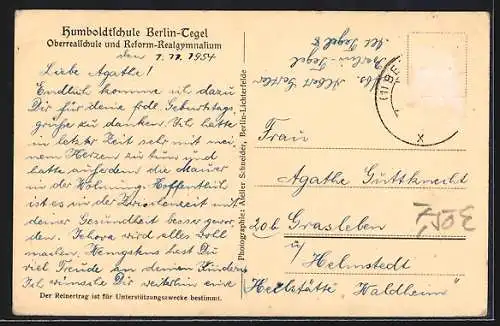 Humboldtschule Berlin-Tegel
Oberrealschule und Reform-Realgymnasium
den 1.11.1954
Liebe Agathe!
Endlich komme ich dazu
Dir für deine frdl. Geburtstags-
grüße zu danken. Ich hatte
in letzter Zeit sehr mit mei-
nem Herzen zu tun und
hatte außerdem die Mauer
in der Wohnung. Hoffentlich
ist es in der Zwischenzeit mit
deiner Gesundheit besser gewor-
den. Sehora wird alles Doll
machen. Wenigstens hast Du
viel Freude an deinen Kindern
Ich wünsche Dir weiterhin eine
Der Reinertrag ist für Unterstützungszwecke bestimmt.
Photographie: Atelier Schneider, Berlin-Lichterfelde
Abs. Albert
Berlin-Tegel
Alt Tegel 8
(1) B
Frau
Agathe Guttknecht
20b Grasleben
ü/
Helmstedt
Heilstätte Waldheim
7,50E